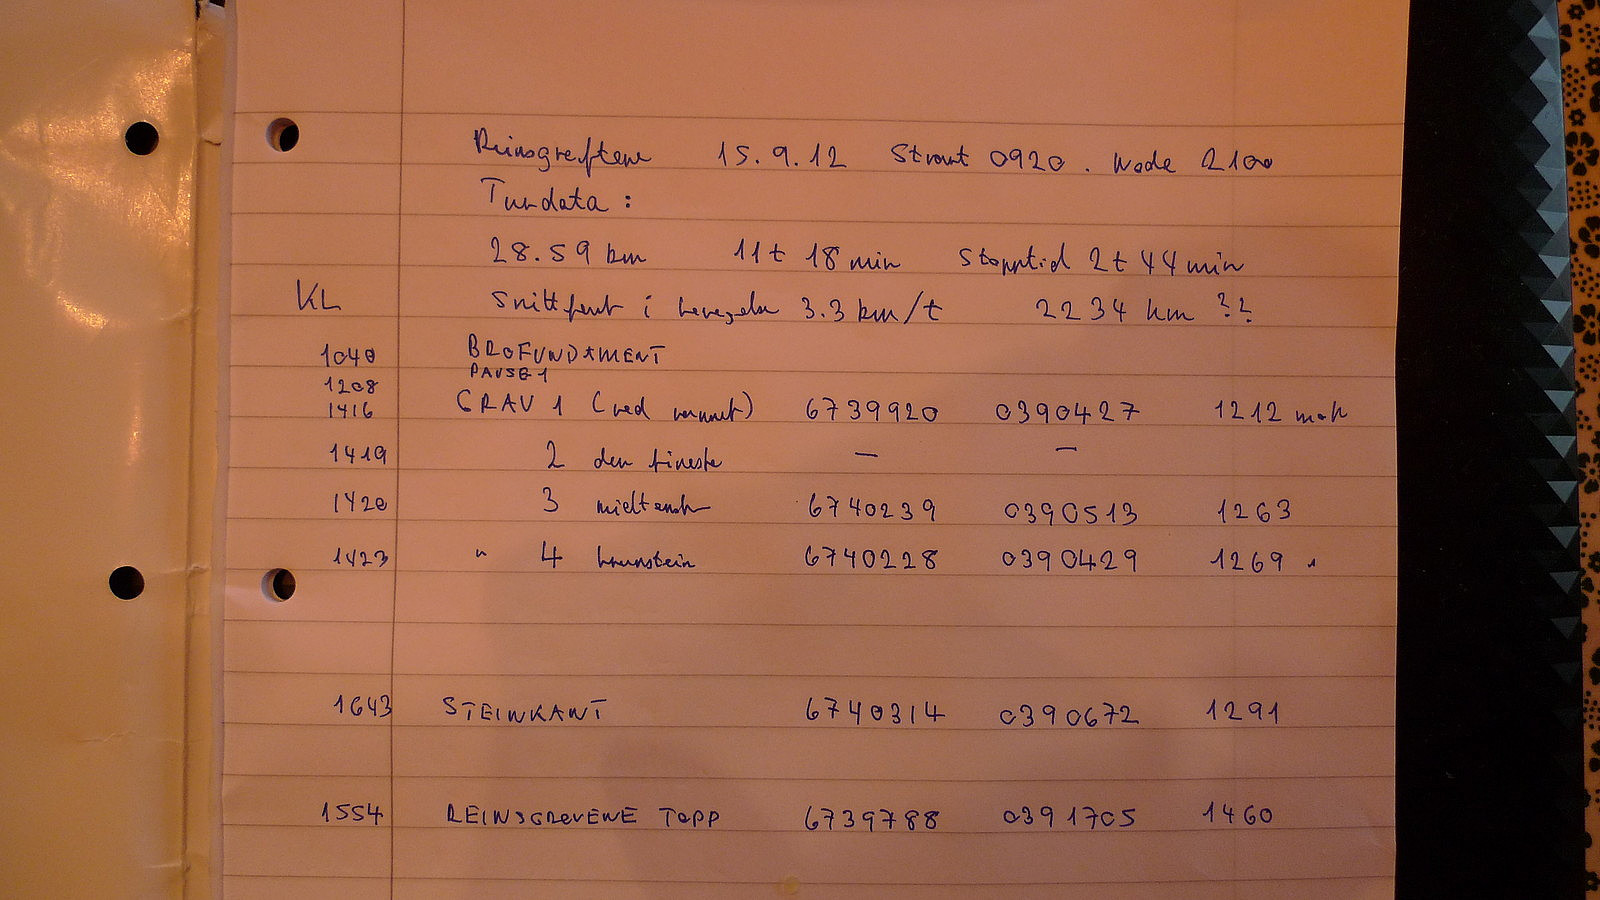 Reinsgreftene 15.9.12 Start 0920. Node 2100
Turdata:
28.59 km 11t 18 min Stopptid 2t 44 min
KL Snittfart i bevegelse 3.3 km/t 2234 km ??
1040 BROFUNDAMENT
1208 PAUSE 1
1416 GRAV 1 (ved vannet) 6739920 0390427 1212 moh
1419 2 den fineste — —
1420 3 6740239 0390513 1263
1423 " 4 6740228 0390429 1269 "
1643 STEINKANT 6740314 0390672 1291
1554 REINSGREVENE TOPP 6739788 0391705 1460